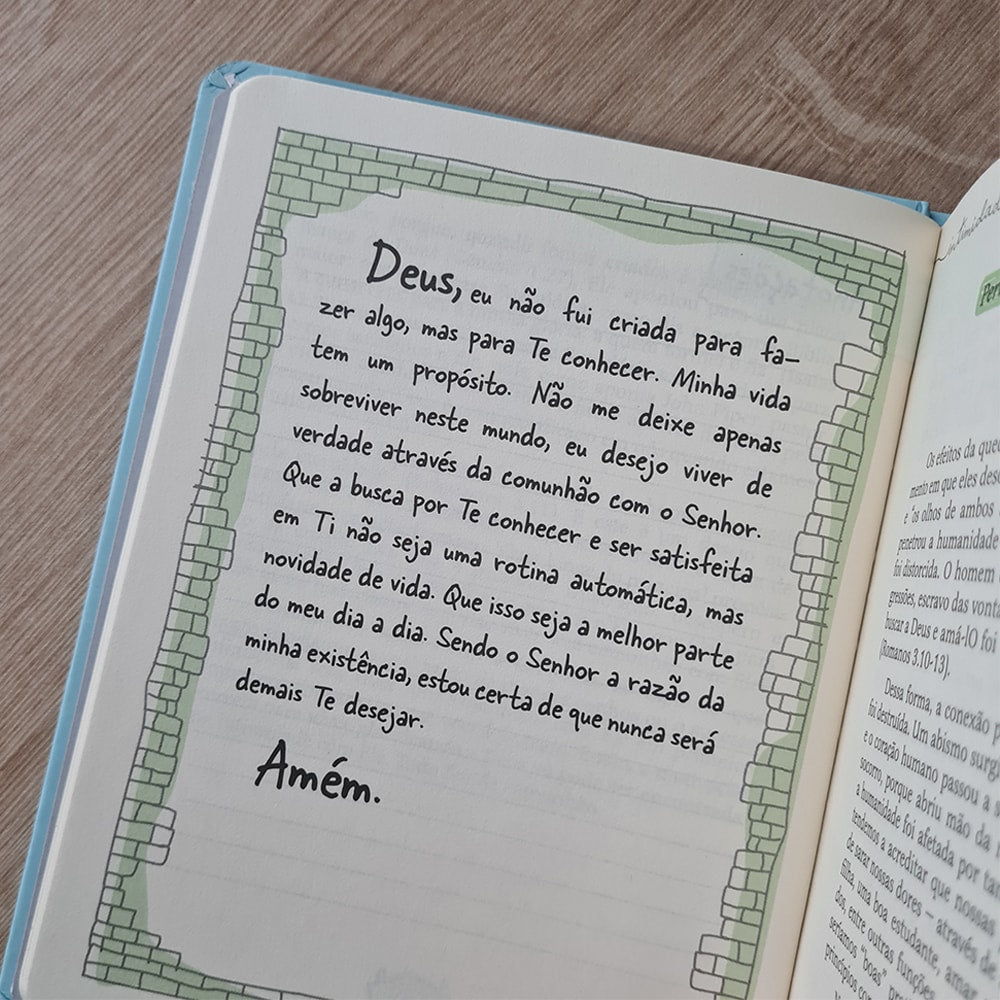 Deus, eu não fui criada para fa-
zer algo, mas para Te conhecer. Minha vida
tem um propósito. Não me deixe apenas
sobreviver neste mundo, eu desejo viver de
verdade através da comunhão com o Senhor.
Que a busca por Te conhecer e ser satisfeita
em Ti não seja uma rotina automática, mas
novidade de vida. Que isso seja a melhor parte
do meu dia a dia. Sendo o Senhor a razão da
minha existência, estou certa de que nunca será
demais Te desejar.
Amém.
Os efeitos da
mento em que eles
e "os olhos de ambos
penetrou a humanidade
foi distorcida. O homem
gressões, escravo das
buscar a Deus e amá-lO foi
(Romanos 3.10-13).
Dessa forma, a conexão
foi destruída. Um abismo
e o coração humano passou a
socorro, porque abriu mão da
a humanidade foi afetada por
tendemos a acreditar que nossas
de sarar nossas dores – através de
filha, uma boa estudante,
dos, entre outras funções
seríamos "boas"
princípios